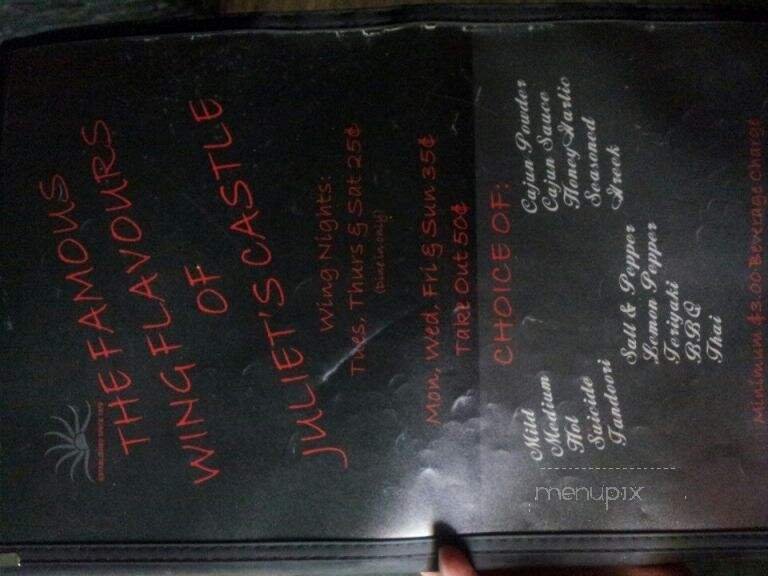 THE FAMOUS
THE FLAVOURS
WING FLAVOURS
OF
JULIET'S CASTLE
Wing Nights:
Tues, Thurs & Sat 25¢
(Dine in only)
Mon, Wed, Fri & Sun 35¢
Take Out 50¢
CHOICE OF:
Mild
Medium
Hot
Suicide
Tandoori
Salt & Pepper
Lemon Pepper
Teriyaki
BBQ
Thai
Cajun Powder
Cajun Sauce
Honey Garlic
Seasoned
Greek
Minimum $3.00 Beverage Charge
menupix